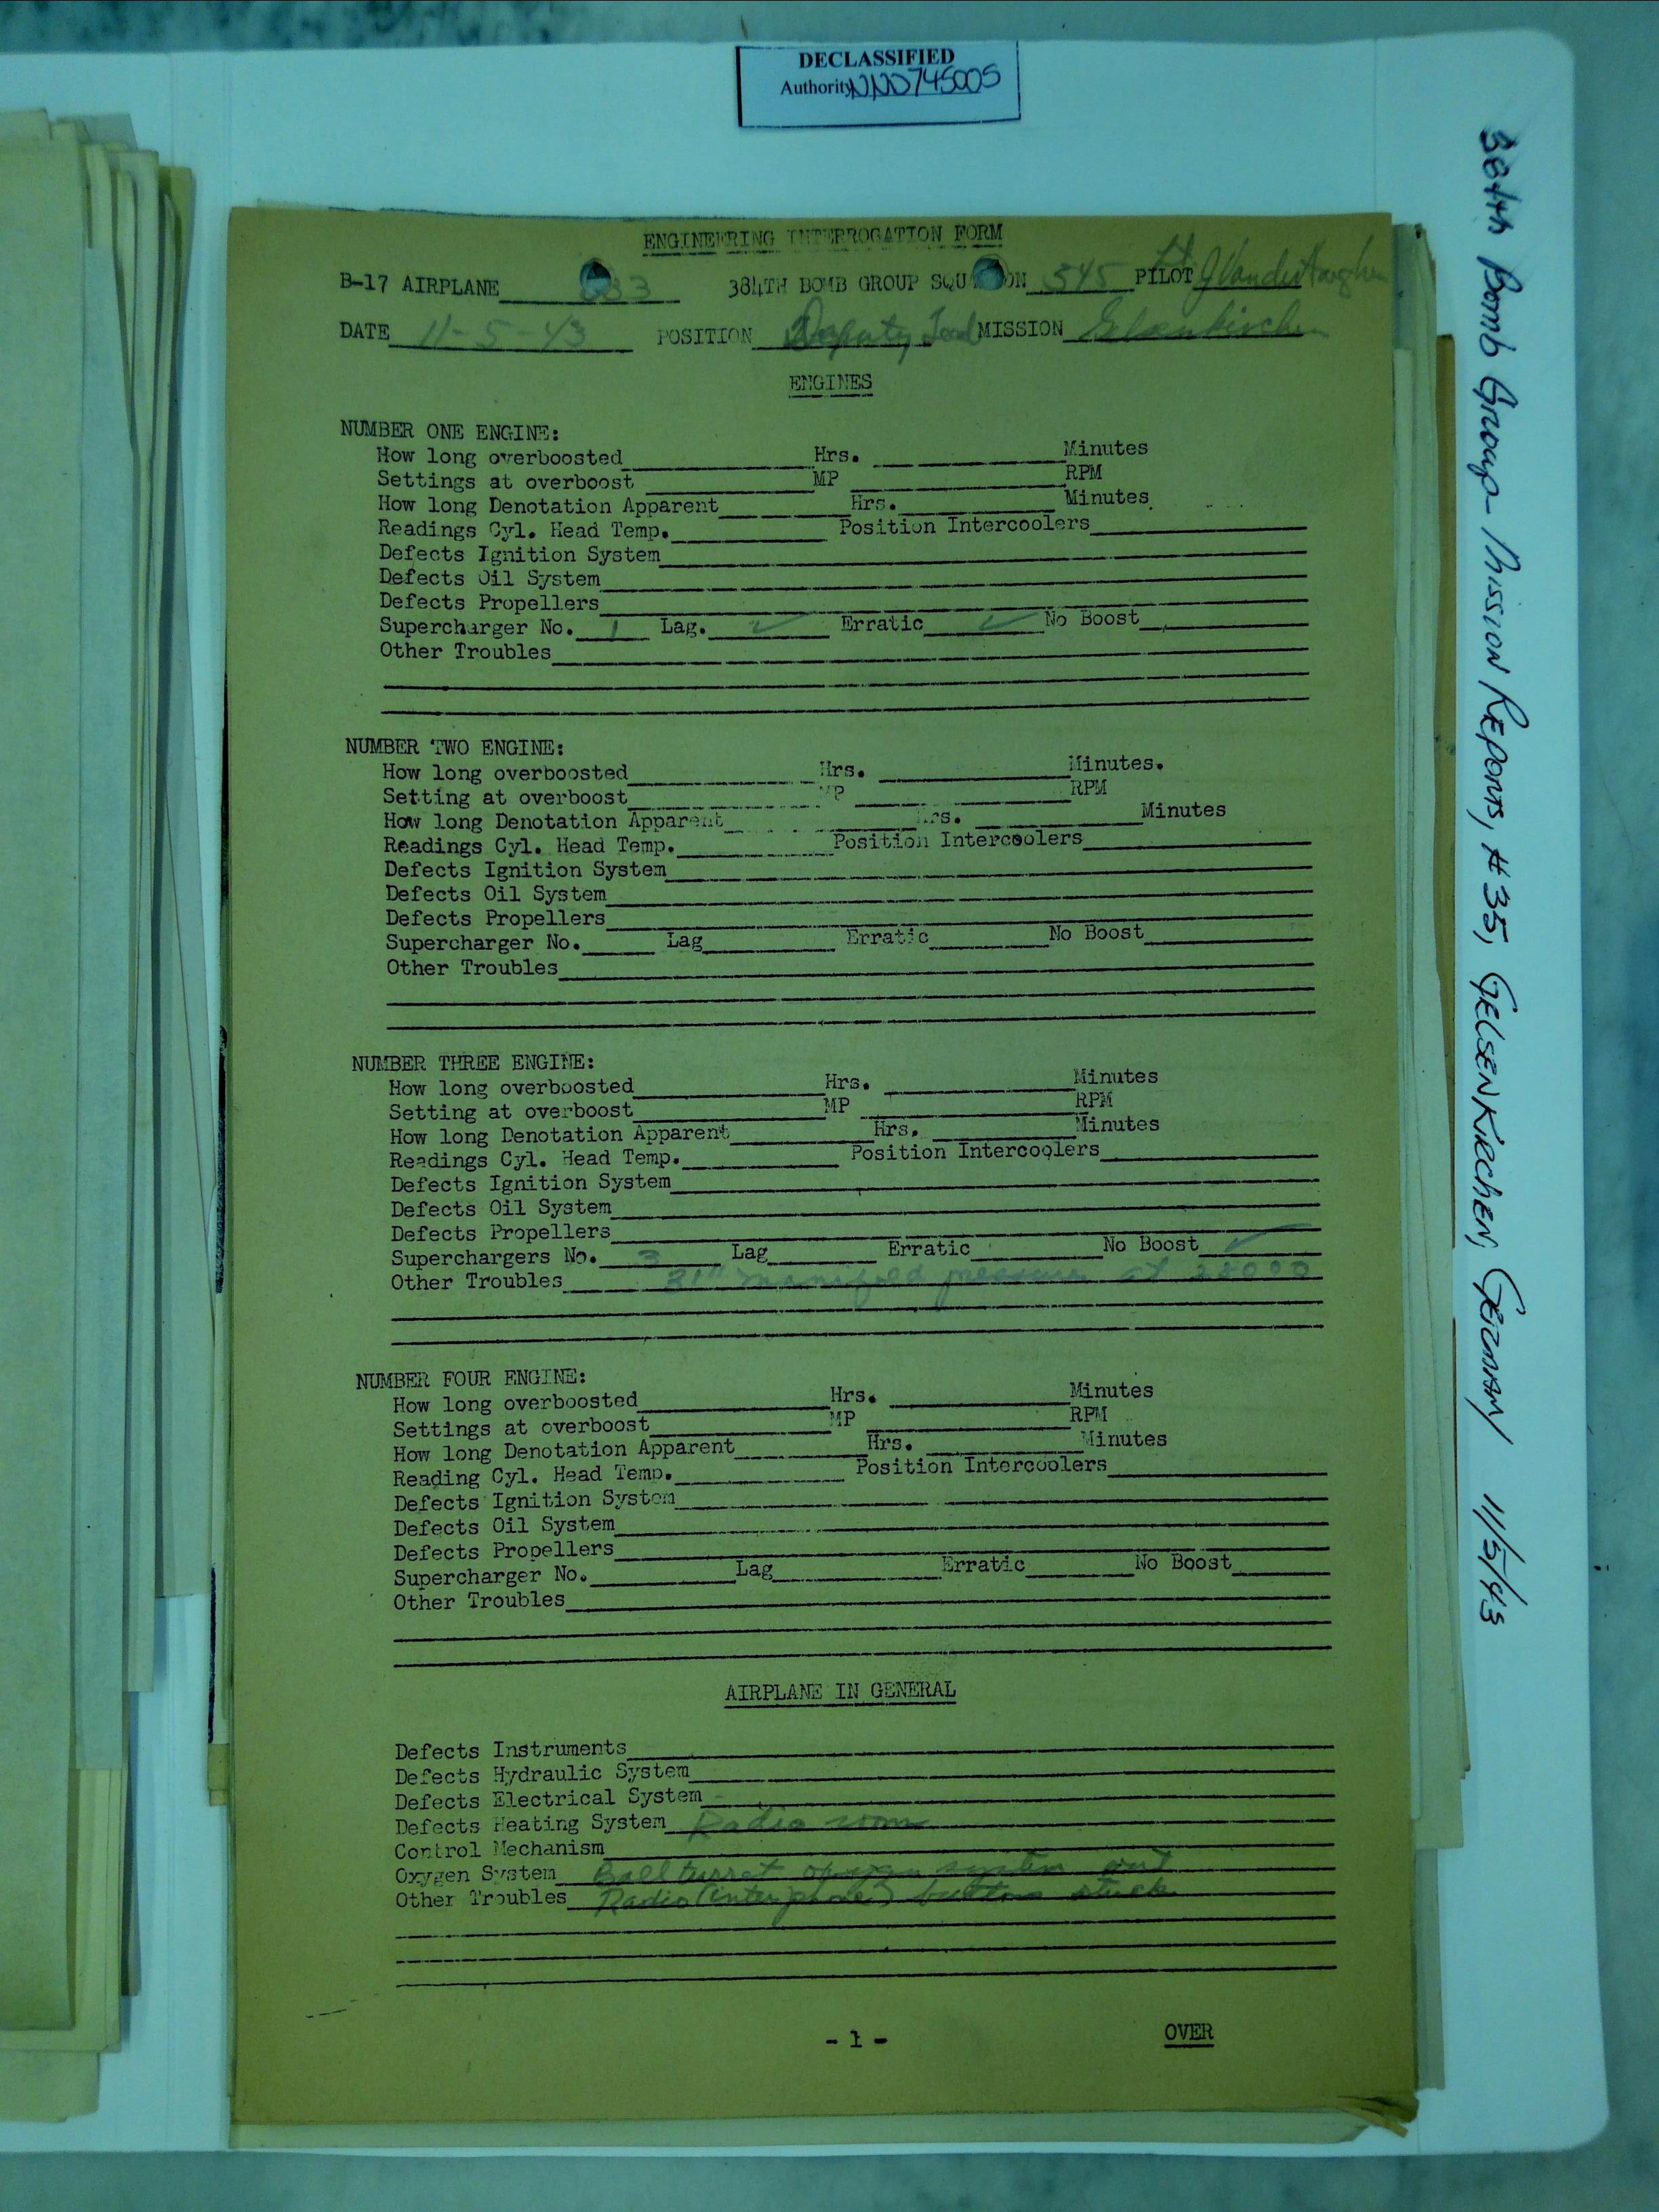 DECLASSIFIED
Authority NND745005
ENGINEERING INTERROGATION FORM
B-17 AIRPLANE 384TH BOMB GROUP SQU ON 545 PILOT Lt J Vanderhaeghen
DATE 11-5-43 POSITION Deputy Lead MISSION
ENGINES
NUMBER ONE ENGINE:
How long overboosted Hrs. Minutes
Settings at overboost MP RPM
How long Denotation Apparent Hrs. Minutes
Readings Cyl. Head Temp. Position Intercoolers
Defects Ignition System
Defects Oil System
Defects Propellers
Supercharger No. 1 Lag. ✓ Erratic ✓ No Boost
Other Troubles
NUMBER TWO ENGINE:
How long overboosted Hrs. Minutes.
Setting at overboost MP RPM
How long Denotation Apparent Hrs. Minutes
Readings Cyl. Head Temp. Position Intercoolers
Defects Ignition System
Defects Oil System
Defects Propellers
Supercharger No. Lag Erratic No Boost
Other Troubles
NUMBER THREE ENGINE:
How long overboosted Hrs. Minutes
Setting at overboost MP RPM
How long Denotation Apparent Hrs. Minutes
Readings Cyl. Head Temp. Position Intercoolers
Defects Ignition System
Defects Oil System
Defects Propellers
Superchargers No. 3 Lag Erratic No Boost ✓
Other Troubles 31" manifold pressure at 28000
NUMBER FOUR ENGINE:
How long overboosted Hrs. Minutes
Settings at overboost MP RPM
How long Denotation Apparent Hrs. Minutes
Reading Cyl. Head Temp. Position Intercoolers
Defects Ignition System
Defects Oil System
Defects Propellers
Supercharger No. Lag Erratic No Boost
Other Troubles
AIRPLANE IN GENERAL
Defects Instruments
Defects Hydraulic System
Defects Electrical System
Defects Heating System Radio room
Control Mechanism
Oxygen System Ball turret oxygen system out
Other Troubles Radio (interphone) button stuck
- 1 -
OVER
384th Bomb Group Mission Reports, #35, GELSENKIRCHEN, GERMANY 11/5/43